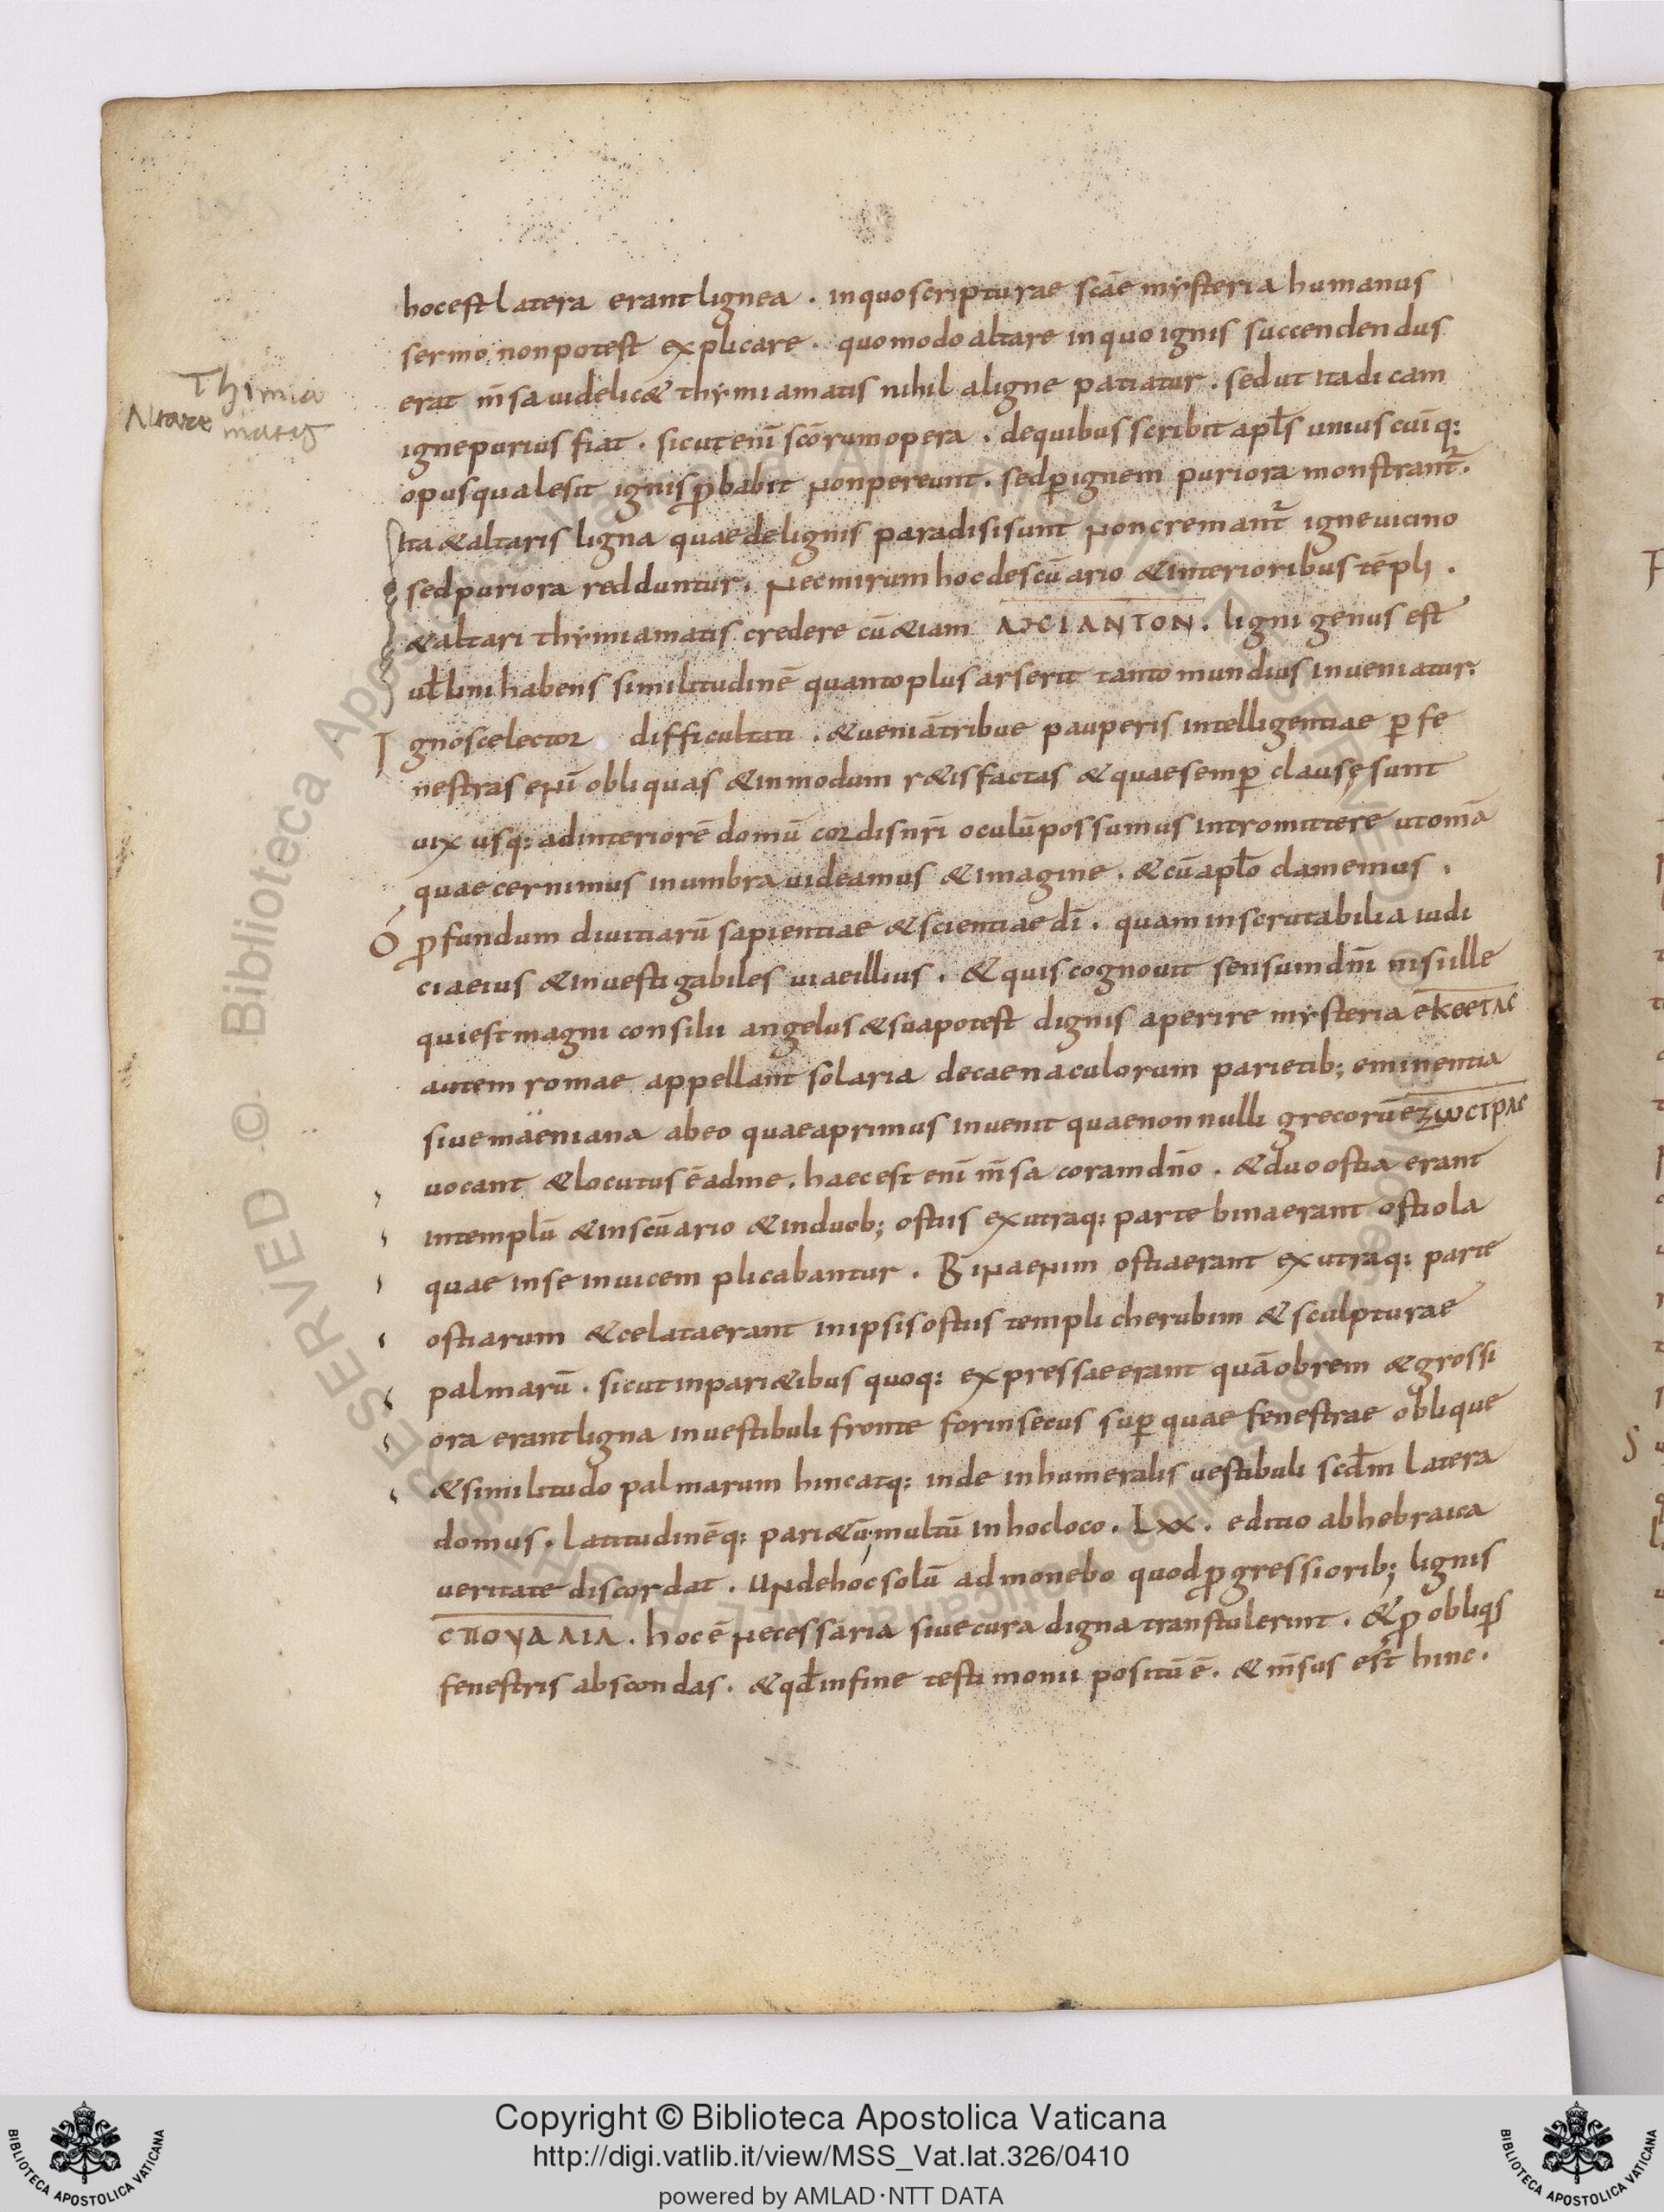 hocest latera erant lignea . inquo scripturae scāe mysteria humanus
sermo nonpotest explicare . quomodo altare inquo ignis succendendus
Thimia
Altare matis
erat m̄sa uidelic& thymiamatis nihil aligne patiatur . sed ut ita dicam
igne purius fiat . sicut enī scōrum opera . dequibus scribit apłs unius cuiq:
opus quale sit ignis ꝓbabit non pereunt . sed ꝑ ignem puriora monstrant̃.
Ita & altaris ligna quae delignis paradisi sunt non cremant̃ igne uicino
sed puriora redduntur . nec mirum hoc descūario & interioribus tēpli .
& altari thymiamatis credere cū &iam ΑΜΙΑΝΤΟΝ . ligni genus est
uł lini habens similitudinē quanto plus arserit tanto mundius inueniatur.
Ignosce lector difficultati . & ueniā tribue pauperis intelligentiae ꝑ fe
nestras enī obliquas & inmodum r&is factas & quae semꝑ clausę sunt
uix usq: ad interiorē domū cordis nr̄i oculū possumus intromittere ut omā
quae cernimus in umbra uideamus & imagine . & cū apło clamemus .
Ó ꝓfundum diuitiarū sapientiae & scientiae dī . quam inscrutabilia iudi
cia eius & inuestigabiles uiae illius . & quis cognouit sensum dnī nisi ille
qui est magni consilii angelus & sua potest dignis aperire mysteria εκεετας
autem romae appellant solaria decaenaculorum parietib; eminentia
siue maeniana abeo quae aprimus inuenit quae nonnulli grecorū εζωστρας
uocant & locutus ē adme . haec est enī m̄sa coram dn̄o . & duo ostia erant
in templū & inscūario & induob; ostiis ex utraq: parte bina erant ostiola
quae inse inuicem plicabantur . Bina enim ostia erant ex utraq: parte
ostiarum & celata erant in ipsis ostiis templi cherubim & sculpturae
palmarū . sicut in pari&ibus quoq: expressae erant quāobrem & grossi
ora erant ligna in uestibuli fronte forinsecus suꝑ quae fenestrae oblique
& similitudo palmarum hinc atq: inde in humeralis uestibuli scđm latera
domus . latitudinēq: pari&ū; multū in hoc loco . Lxx . editio ab hebraica
ueritate discordat . unde hoc solū admonebo quod ꝓ gressiorib; lignis
СΠΟΥΔΑΙΑ . hoc ē necessaria siue cura digna transtulerint . & ꝓ obliqs
fenestris abscondas . & qđ in fine testimonii positū ē . & m̄sus est hinc .
Copyright © Biblioteca Apostolica Vaticana
http://digi.vatlib.it/view/MSS_Vat.lat.326/0410
powered by AMLAD·NTT DATA
BIBLIOTECA APOSTOLICA VATICANA
BIBLIOTECA APOSTOLICA VATICANA